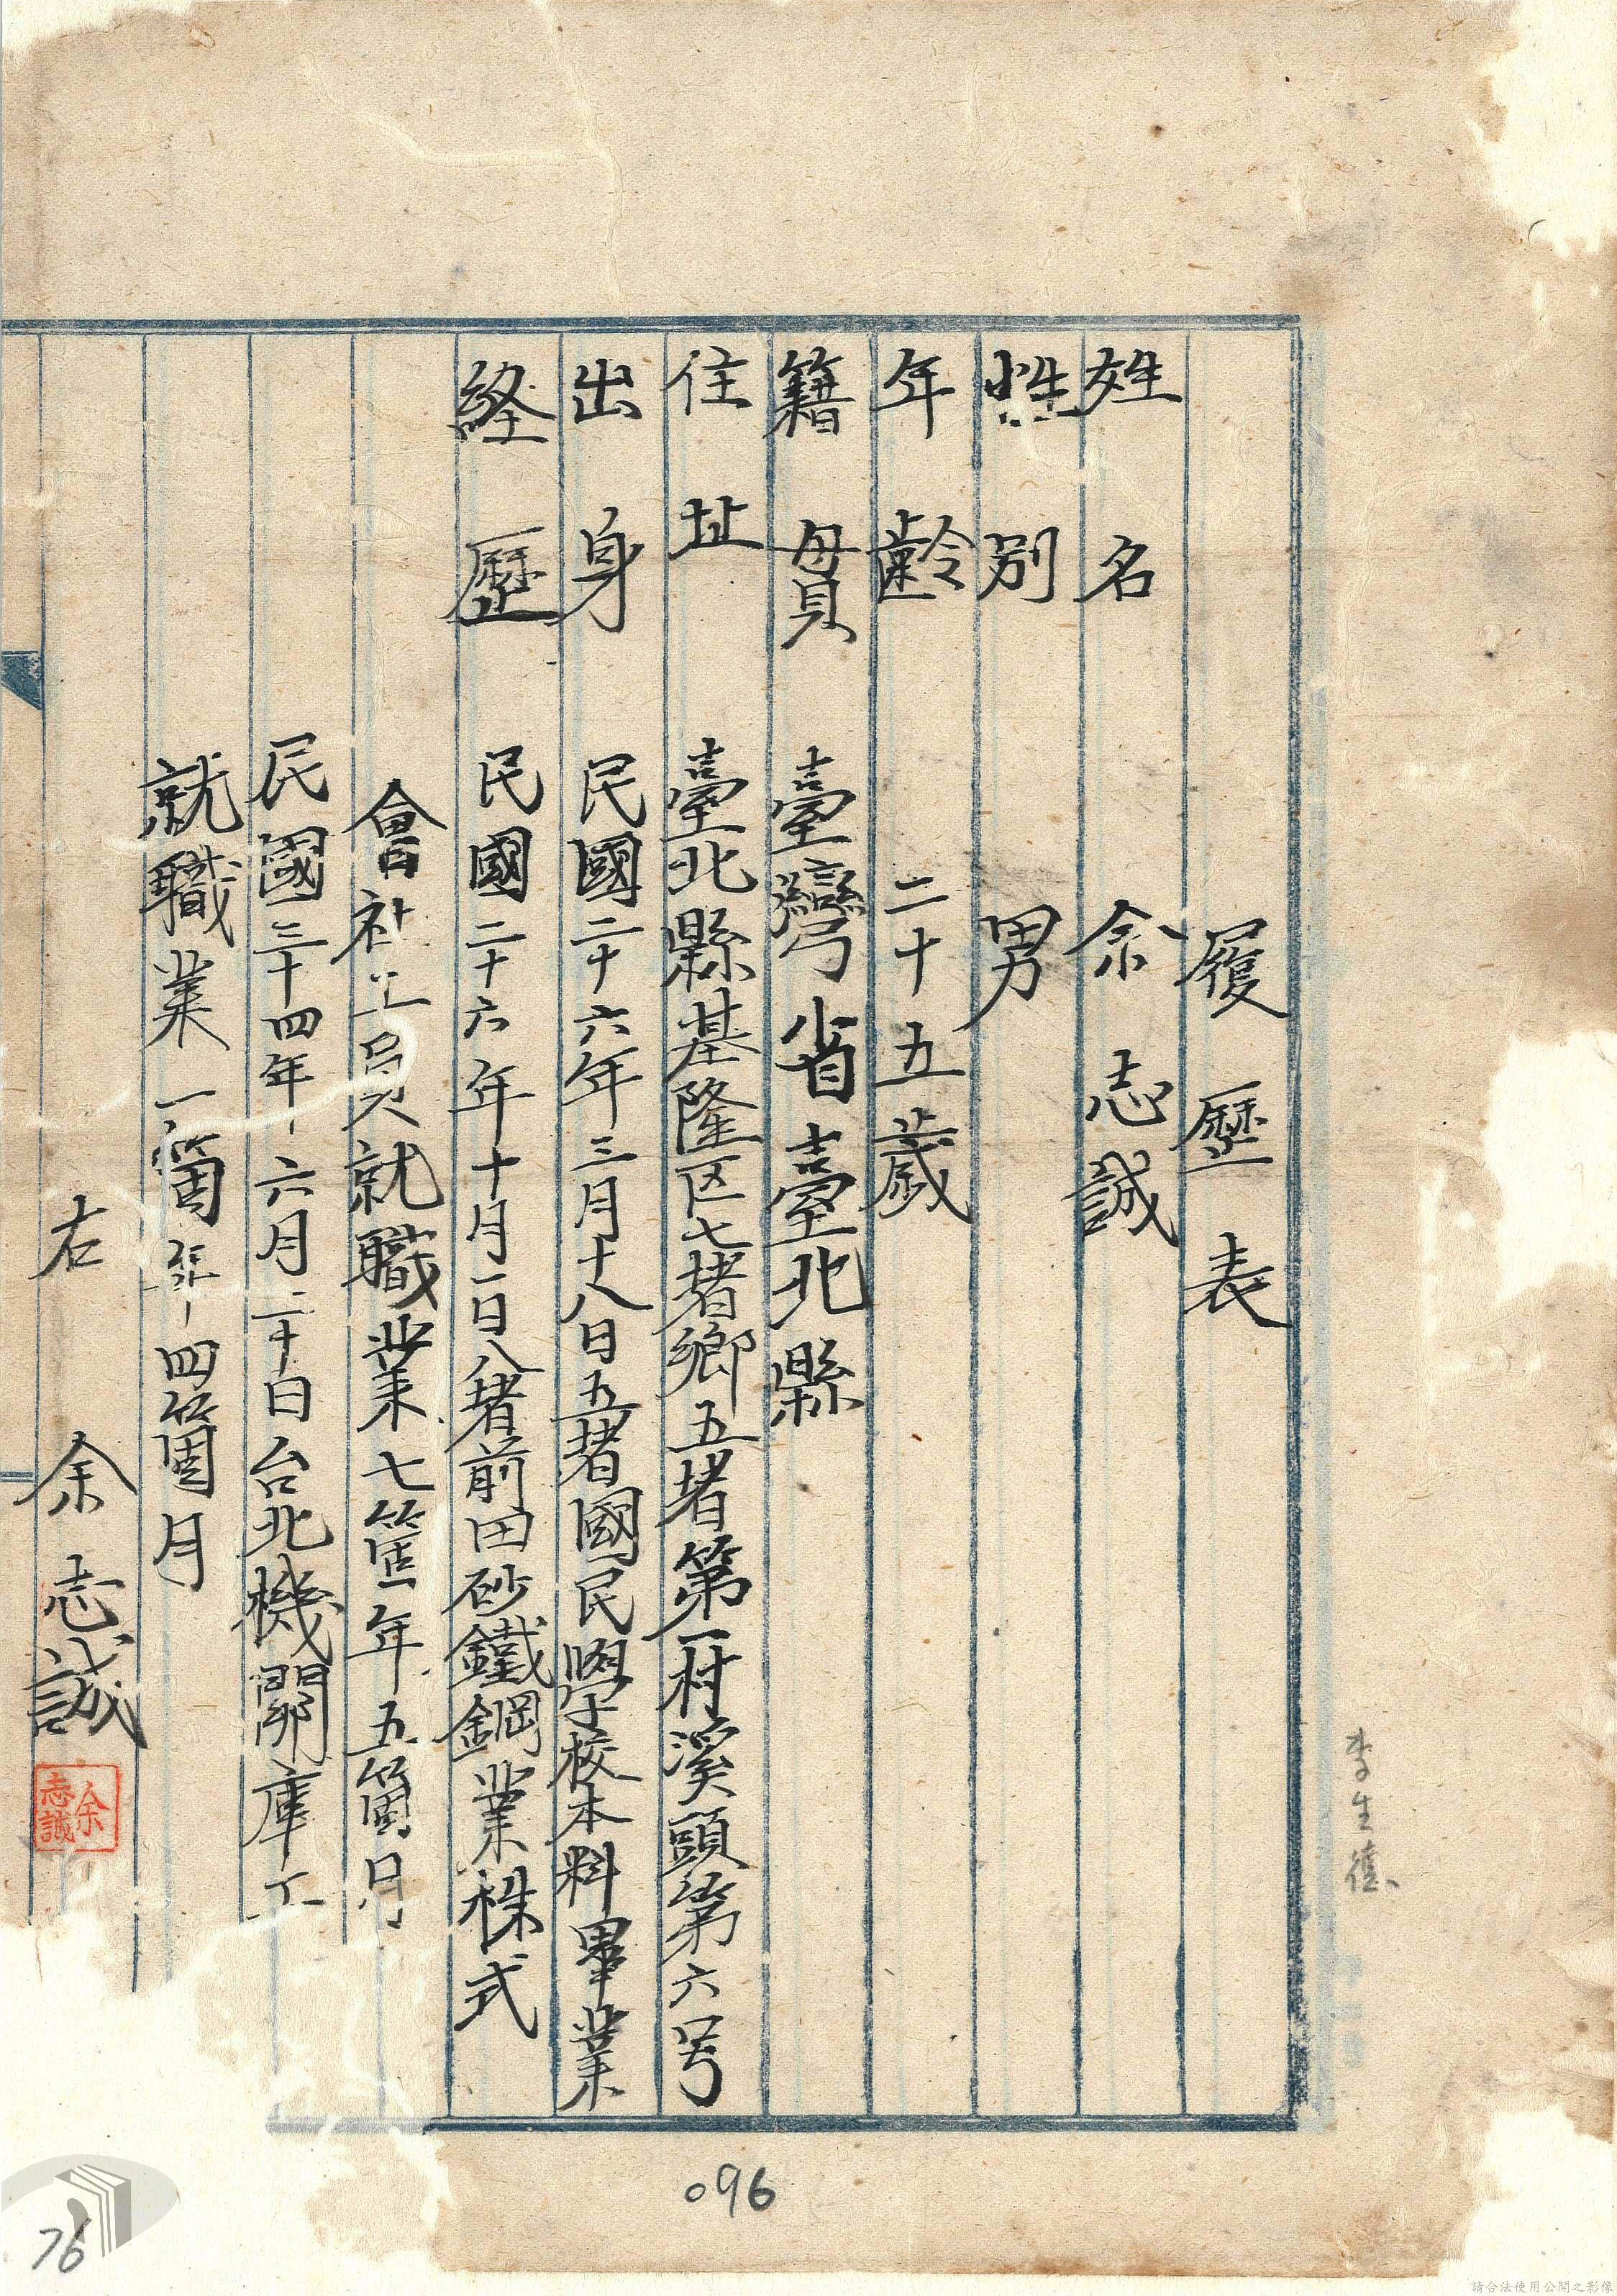 履歷表
姓名 余志誠
性別 男
年齡 二十五歲
籍貫 臺灣省臺北縣
住址 臺北縣基隆区七堵鄉五堵第一村溪頭第六号
出身 民國二十六年三月十八日五堵國民學校本科畢業
経歷 民國二十六年十月一日八堵前田砂鐵鋼業株式
會社工員就職業七箇年五箇月
民國三十四年六月二十日台北機關庫工
就職業一箇年四箇月
右 余志誠
余志誠
李生
096
76
請合法使用公開之影像